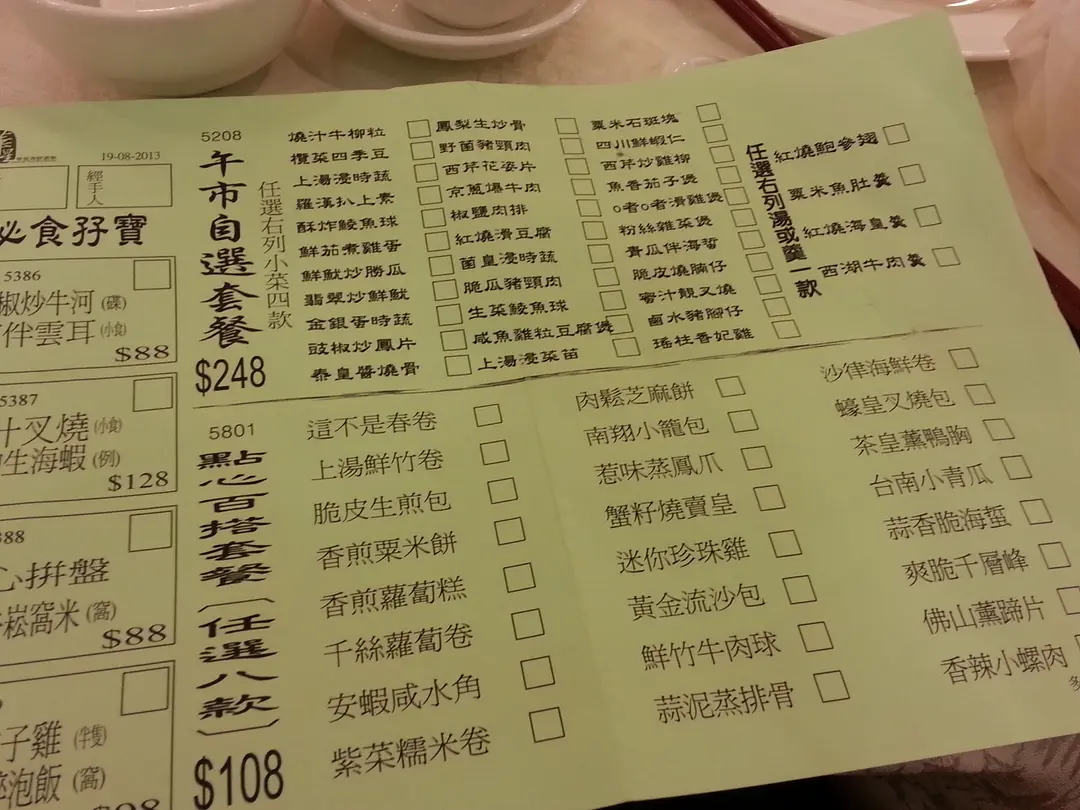 19-08-2013
經手人
必食孖寶
5386
椒炒牛河(碟)
伴雲耳(小食)
$88
5387
汁叉燒(小食)
生海蝦(例)
$128
388
心拼盤
崧窩米(窩)
$88
子雞(半隻)
泡飯(窩)
5208
午市自選套餐
$248
任選右列小菜四款
燒汁牛柳粒
欖菜四季豆
上湯浸時蔬
羅漢扒上素
酥炸鯪魚球
鮮茄煮雞蛋
鮮魷炒勝瓜
翡翠炒鮮魷
金銀蛋時蔬
豉椒炒鳳片
秦皇醬燒骨
鳳梨生炒骨
野菌豬頸肉
西芹花姿片
京蔥爆牛肉
椒鹽肉排
紅燒滑豆腐
菌皇浸時蔬
脆瓜豬頸肉
生菜鯪魚球
咸魚雞粒豆腐煲
上湯浸菜苗
粟米石斑塊
四川鮮蝦仁
西芹炒雞柳
魚香茄子煲
o者o者滑雞煲
粉絲雜菜煲
青瓜伴海蜇
脆皮燒腩仔
蜜汁靚叉燒
鹵水豬腳仔
瑤柱香妃雞
任選右列湯或羹一款
紅燒鮑參翅
粟米魚肚羹
紅燒海皇羹
西湖牛肉羹
5801
點心百搭套餐(任選八款)
$108
這不是春卷
上湯鮮竹卷
脆皮生煎包
香煎粟米餅
香煎蘿蔔糕
千絲蘿蔔卷
安蝦咸水角
紫菜糯米卷
肉鬆芝麻餅
南翔小籠包
惹味蒸鳳爪
蟹籽燒賣皇
迷你珍珠雞
黃金流沙包
鮮竹牛肉球
蒜泥蒸排骨
沙律海鮮卷
蠔皇叉燒包
茶皇薰鴨胸
台南小青瓜
蒜香脆海蜇
爽脆千層峰
佛山薰蹄片
香辣小螺肉